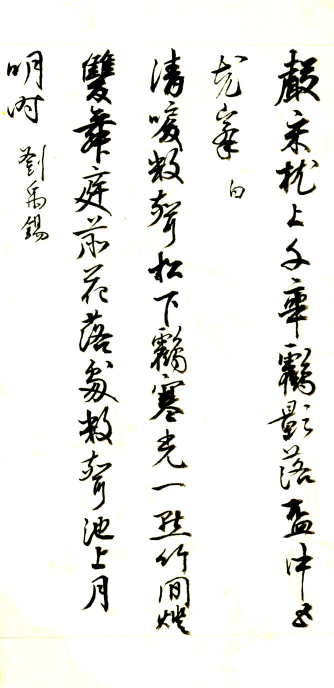 聲來枕上千年鶴影落盃中五
老峯 白
清唳數聲松下鶴寒光一點竹間燈
雙舞庭前花落處數聲池上月
明時 劉禹錫